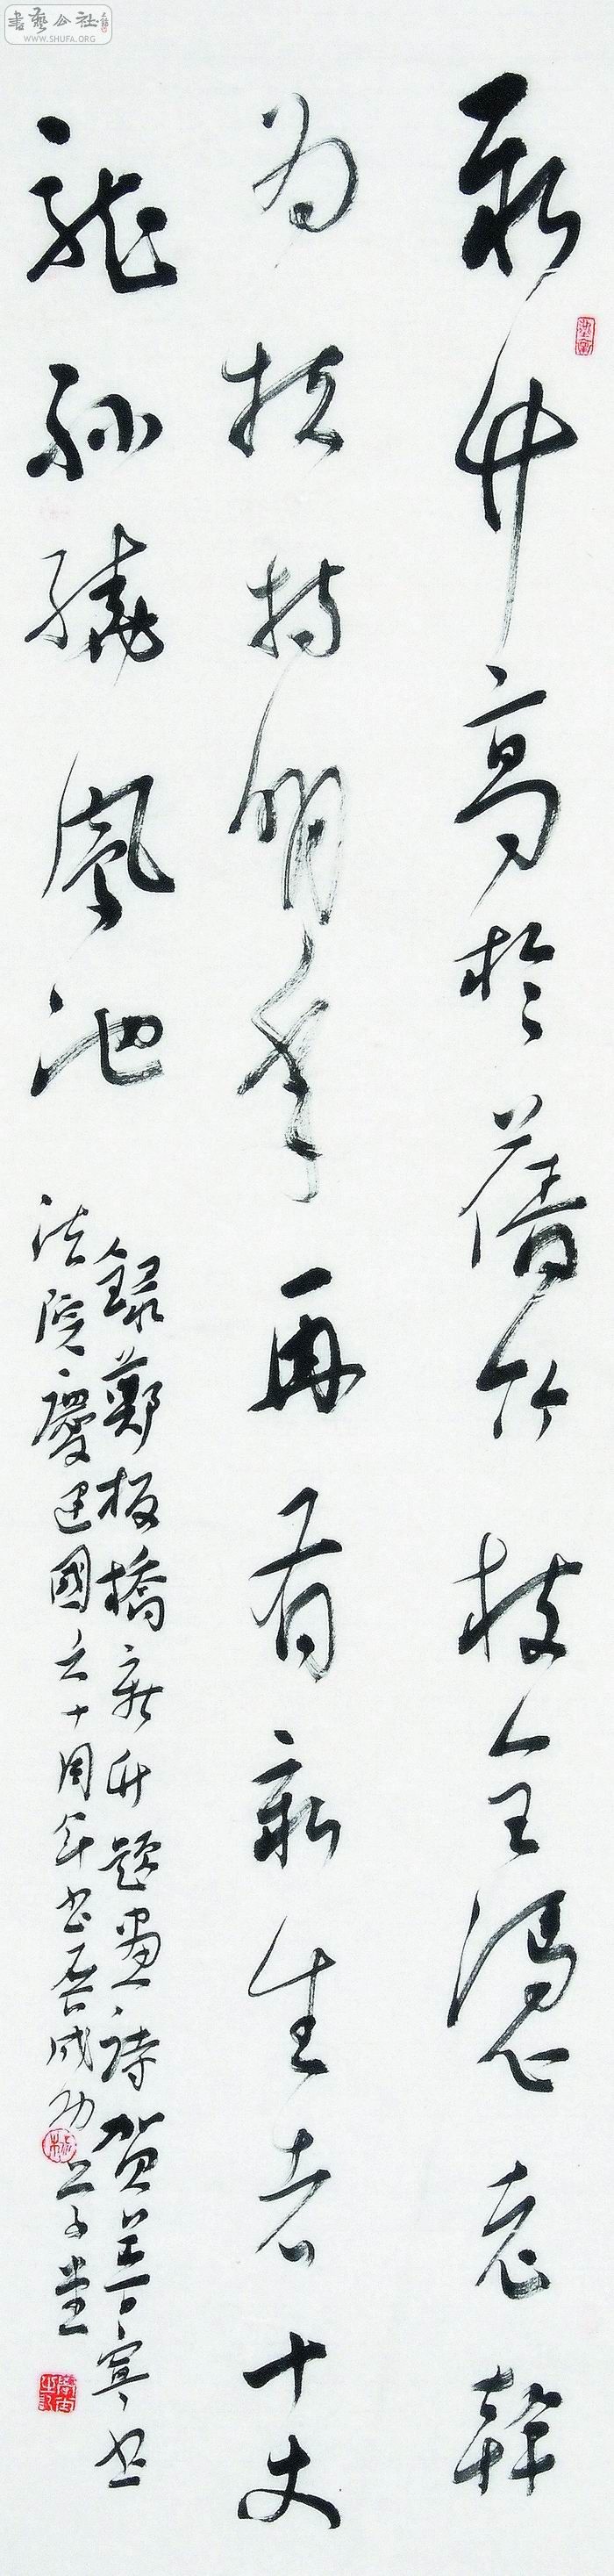 書藝公社
WWW.SHUFA.ORG
新竹高於舊竹枝全憑老幹
为扶持明年再有新生者十丈
龍孫繞鳳池
錄鄭板橋新竹題畫詩賀普寧
法院慶建國六十周年书展成功